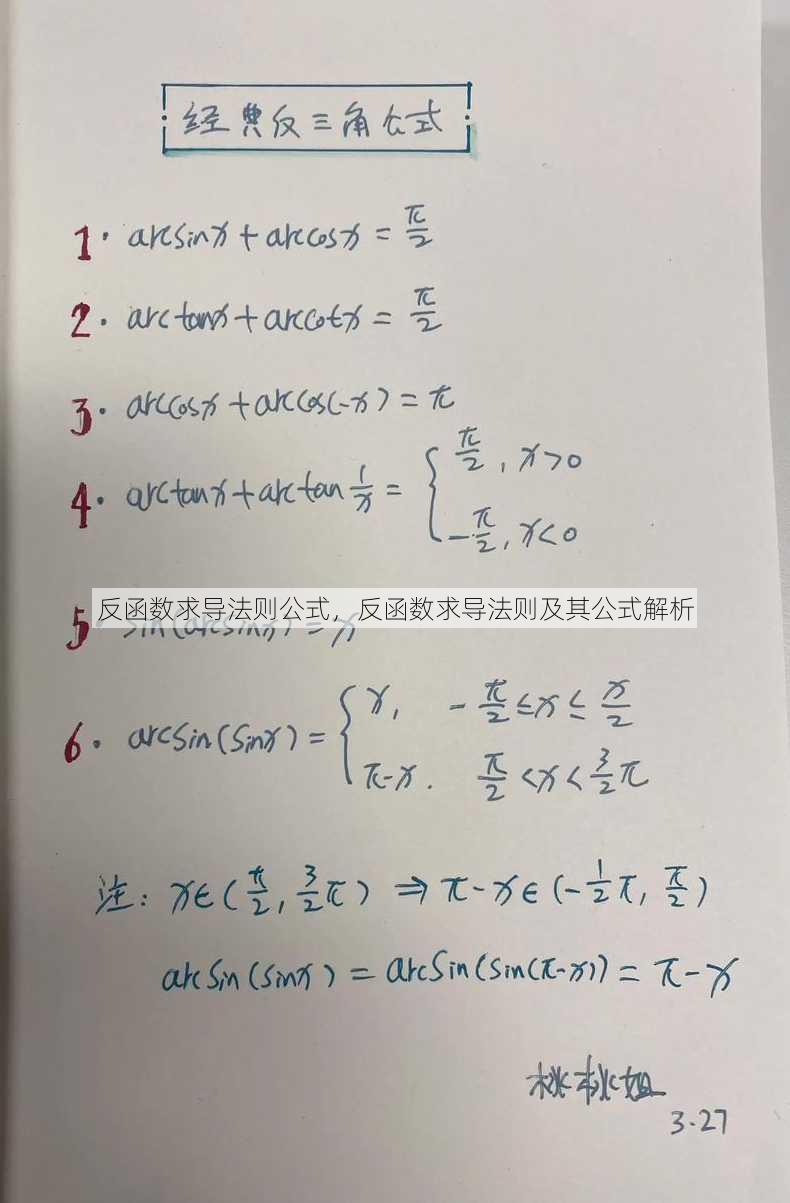 经典反三角公式
1. arcsinx + arccosx = π/2
2. arctanx + arccotx = π/2
3. arccosx + arccos(-x) = π
4. arctanx + arctan 1/x = { π/2, x>0
-π/2, x<0
反函数求导法则公式，反函数求导法则及其公式解析
5. sin(arcsinx) = x
6. arcsin(sinx) = { x, -π/2 ≤ x ≤ π/2
π-x. π/2 < x < 3/2 π
注: x∈(π/2, 3/2 π) ⇒ π-x∈(-1/2 π, π/2)
arcsin(sinx) = arcsin(sin(π-x)) = π-x
桃桃姐
3.27